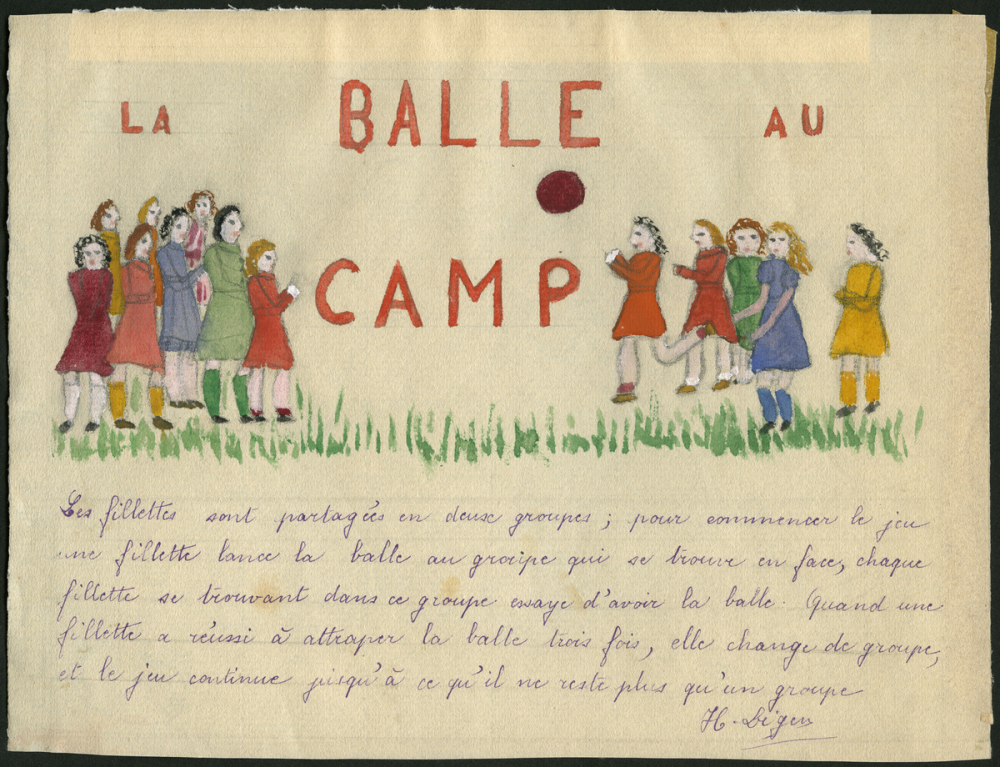 LA BALLE AU
CAMP
Les fillettes sont partagées en deux groupes ; pour commencer le jeu
une fillette lance la balle au groupe qui se trouve en face, chaque
fillette se trouvant dans ce groupe essaye d'avoir la balle. Quand une
fillette a réussi à attraper la balle trois fois, elle change de groupe,
et le jeu continue jusqu'à ce qu'il ne reste plus qu'un groupe
H.